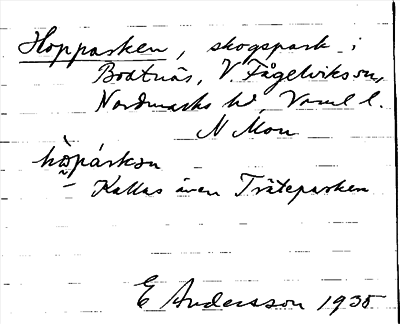 Hopparken, skogspark i
Boatnäs, V. Fågelviks sn,
Nordmarks hd, Verml l.
N Mon
håp̀árkɘn
Kallas även Träteparken
E Andersson 1935